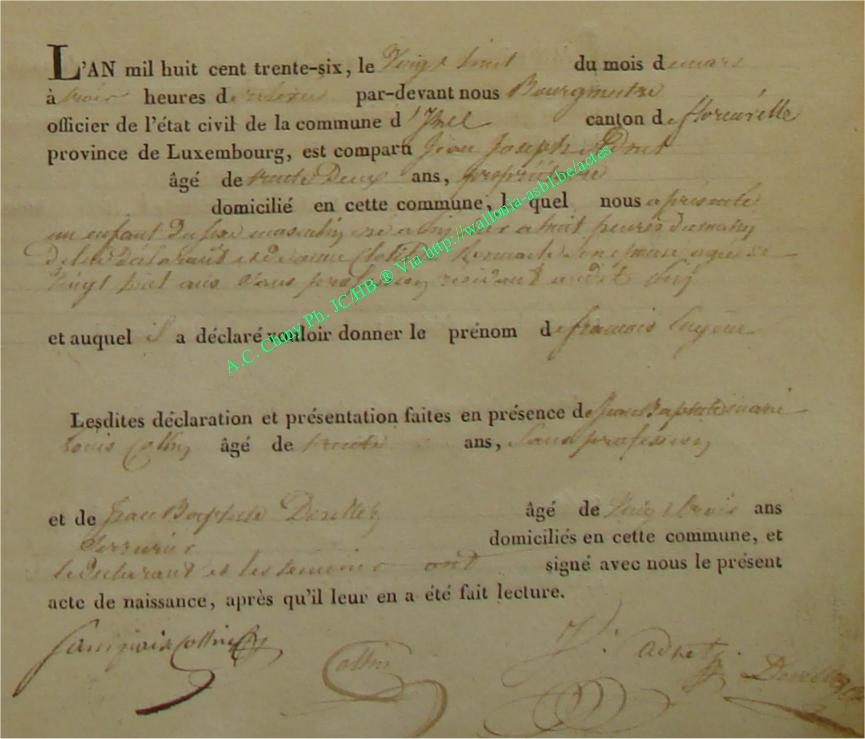 L'AN mil huit cent trente-six, le Vingt huit du mois de mars
à trois heures de relevée par-devant nous Bourgmestre
officier de l'état civil de la commune d'Izel canton de florenville
province de Luxembourg, est comparu Jean Joseph Adnet
âgé de trente Deux ans, propriétaire
domicilié en cette commune, le quel nous a présenté
un enfant Du sexe masculin né a huit heures du matin
De lui Déclarant et De
Vingt huit ans Sans profession résidant audit Izel
et auquel il a déclaré vouloir donner le prénom de francois Eugene
Lesdites déclaration et présentation faites en présence de Jean Baptiste marie
Louis Collin âgé de trente ans, Sans profession
et de Jean Baptiste âgé de Vingt trois ans
Serrurier domiciliés en cette commune, et
le Déclarant et les témoins ont signé avec nous le présent
acte de naissance, après qu'il leur en a été fait lecture.
Collin J. Adnet
A.C. Chiny Ph. JC/HB ® Via http://wallonia-asbl.be/actes